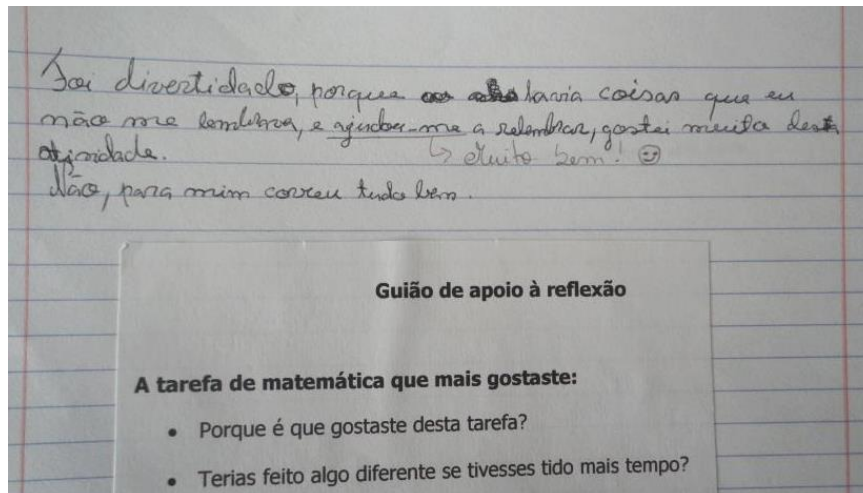 Foi divertidado, porque havia coisas que eu
não me lembrava, e ajudou-me a relembrar, gostei muito desta
atividade.
↳ Muito bem! ☺
Não, para mim correu tudo bem.
Guião de apoio à reflexão
A tarefa de matemática que mais gostaste:
• Porque é que gostaste desta tarefa?
• Terias feito algo diferente se tivesses tido mais tempo?